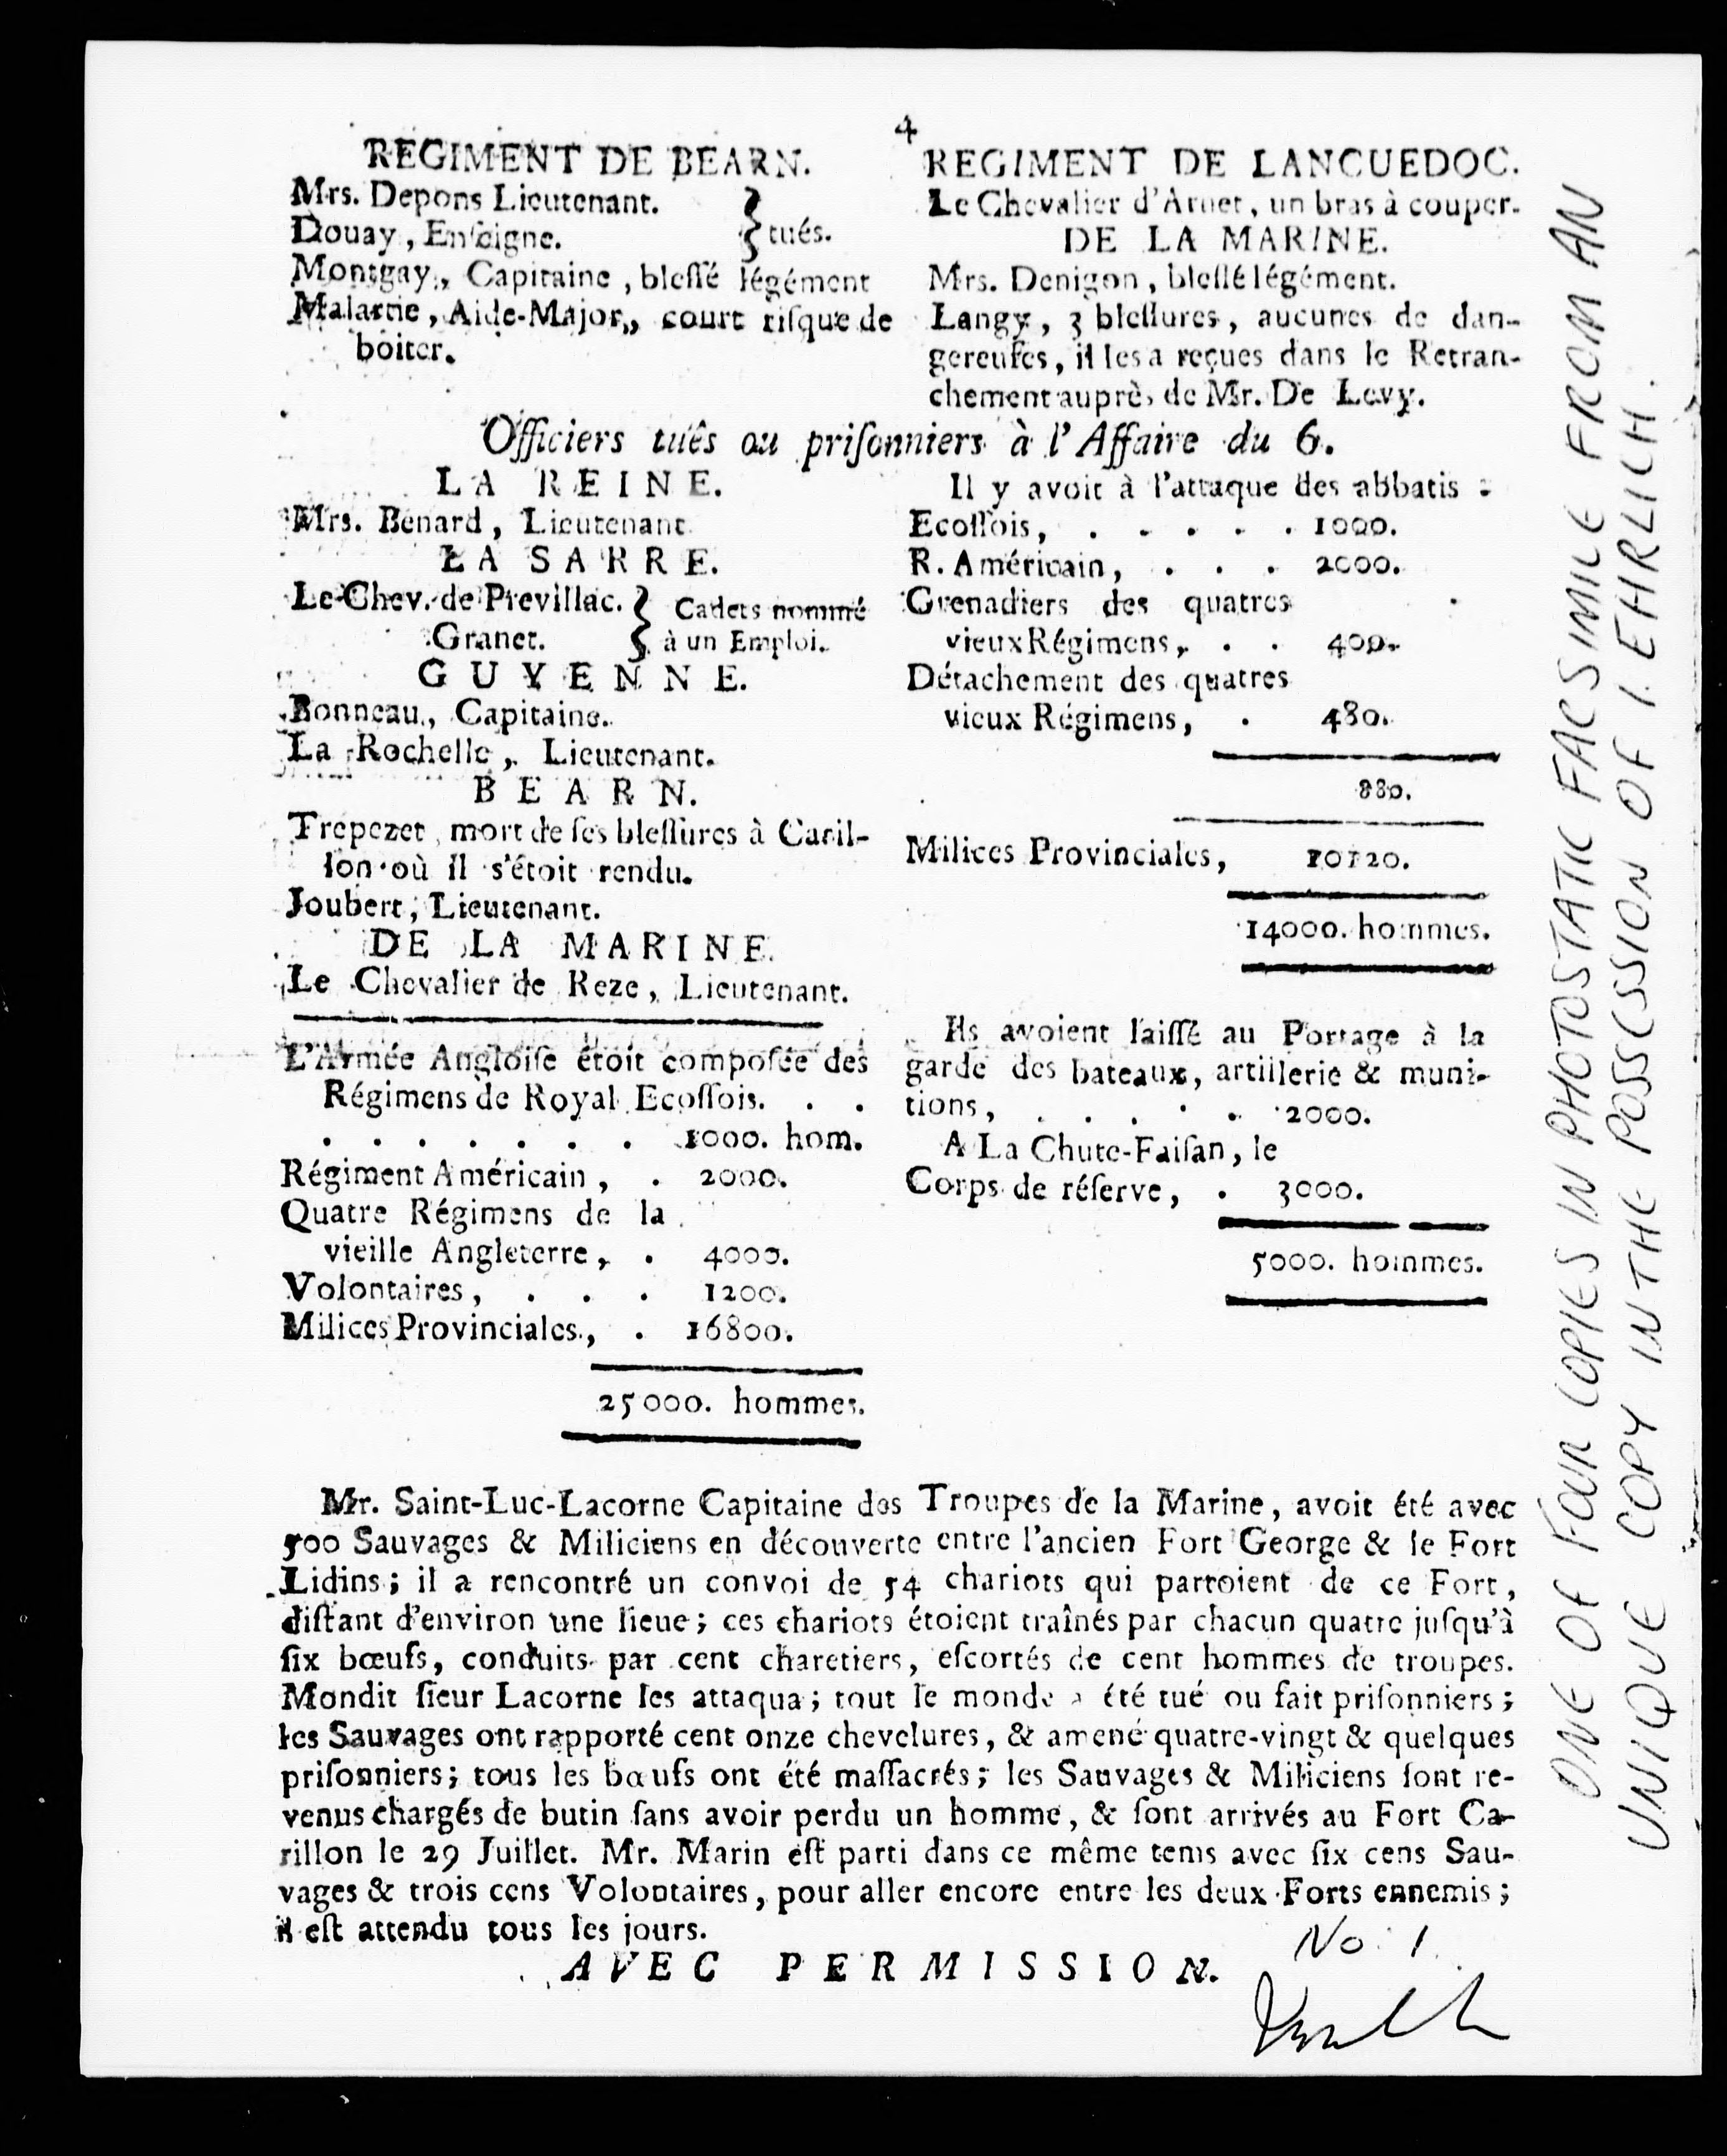 4
REGIMENT DE BEARN.
Mrs. Depons Lieutenant.
Douay, Enſeigne.
} tués.
Montgay, Capitaine, bleſſé légément
Malartie, Aide-Major, court riſque de
boiter.
REGIMENT DE LANGUEDOC.
Le Chevalier d'Arnet, un bras à couper.
DE LA MARINE.
Mrs. Denigon, bleſſé légément.
Langy, 3 bleſſures, aucunes de dan-
gereuſes, il les a reçues dans le Retran-
chement auprès de Mr. De Levy.
Officiers tués ou priſonniers à l'Affaire du 6.
LA REINE.
Mrs. Benard, Lieutenant
LA SARRE.
Le Chev. de Previllac. } Cadets nommé
Granet. } à un Emploi.
GUYENNE.
Bonneau, Capitaine.
La Rochelle, Lieutenant.
BEARN.
Trepezet, mort de ſes bleſſures à Caril-
lon où il s'étoit rendu.
Joubert, Lieutenant.
DE LA MARINE.
Le Chevalier de Reze, Lieutenant.
L'Armée Angloiſe étoit compoſée des
Régimens de Royal Ecoſſois. . .
. . . . . . . 1000. hom.
Régiment Américain, . 2000.
Quatre Régimens de la
vieille Angleterre, . 4000.
Volontaires, . . . 1200.
Milices Provinciales, . 16800.
25000. hommes.
Il y avoit à l'attaque des abbatis :
Ecoſſois, . . . . . 1000.
R. Américain, . . . 2000.
Grenadiers des quatres
vieux Régimens, . . 400.
Détachement des quatres
vieux Régimens, . 480.
880.
Milices Provinciales, 10120.
14000. hommes.
Ils avoient laiſſé au Portage à la
garde des bateaux, artillerie & muni-
tions, . . . . . 2000.
A La Chute-Faiſan, le
Corps de réſerve, . 3000.
5000. hommes.
Mr. Saint-Luc-Lacorne Capitaine des Troupes de la Marine, avoit été avec
500 Sauvages & Miliciens en découverte entre l'ancien Fort George & le Fort
Lidins; il a rencontré un convoi de 54 chariots qui partoient de ce Fort,
diſtant d'environ une lieue; ces chariots étoient traînés par chacun quatre juſqu'à
ſix bœufs, conduits par cent charetiers, eſcortés de cent hommes de troupes.
Mondit ſieur Lacorne les attaqua; tout le monde a été tué ou fait priſonniers;
les Sauvages ont rapporté cent onze chevelures, & amené quatre-vingt & quelques
priſonniers; tous les bœufs ont été maſſacrés; les Sauvages & Miliciens ſont re-
venus chargés de butin ſans avoir perdu un homme, & ſont arrivés au Fort Ca-
rillon le 29 Juillet. Mr. Marin eſt parti dans ce même tems avec ſix cens Sau-
vages & trois cens Volontaires, pour aller encore entre les deux Forts ennemis;
il eſt attendu tous les jours.
AVEC PERMISSION.
No. 1
ONE OF FOUR COPIES IN PHOTOSTATIC FACSIMILE FROM AN
UNIQUE COPY IN THE POSSESSION OF I. EHRLICH.